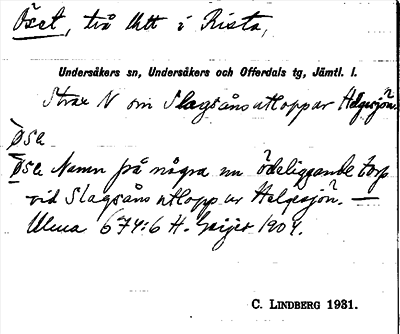 Öset, två [?] i Rista,
Undersåkers sn, Undersåkers och Offerdals tg, Jämtl. l.
Strax N om Slagsåns utlopp ur Helgesjön.
Øse
Øse Namn på några nu ödeliggande torp
vid Slagsåns utlopp ur Helgesjön. —
Ulma 674:6 H. Geijer 1904.
C. LINDBERG 1931.